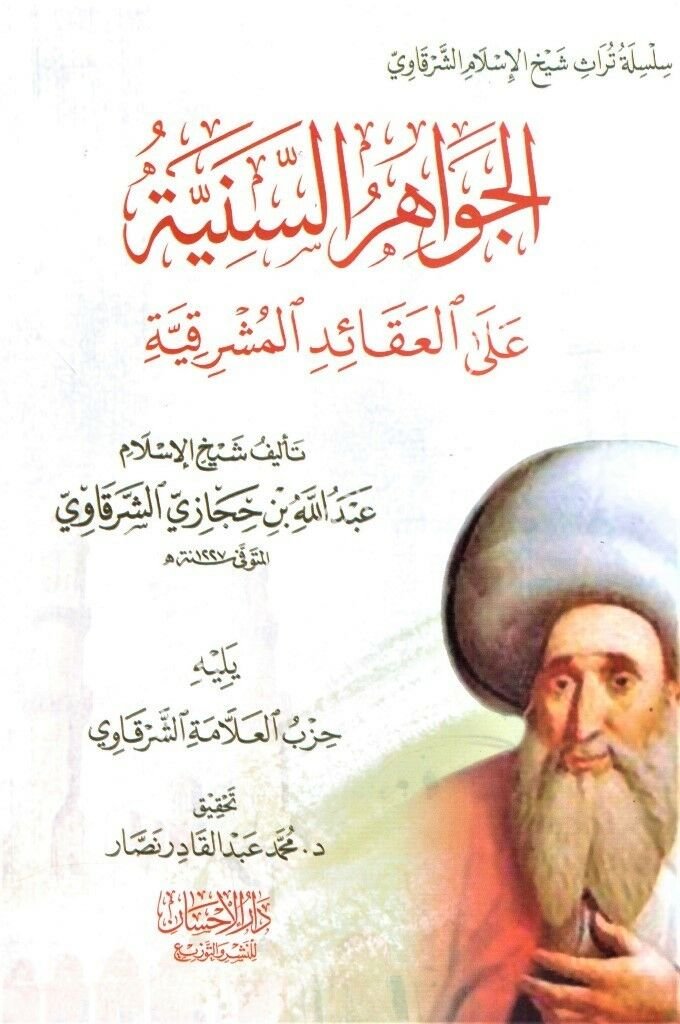 سِلْسِلَةُ تُرَاثِ شَيْخِ الإِسْلَامِ الشَّرْقَاوِيّ
الجَوَاهِرُ السَّنِيَّةُ
عَلَى ٱلْعَقَائِدِ ٱلْمُشْرِقِيَّةِ
تَأْلِيفُ شَيْخِ الإِسْلَامِ
عَبْدُ اللَّهِ بْنِ حِجَازِيّ الشَّرْقَاوِيّ
المتوفى سنة ١٢٢٧ هـ
يَلِيْهِ
حِزْبُ ٱلْعَلَّامَةِ ٱلشَّرْقَاوِي
تَحْقِيق
د. مُحَمَّد عَبْد القَادِر نَصَّار
دَارُ الإِحْسَان
لِلنَّشْرِ وَالتَّوْزِيعِ